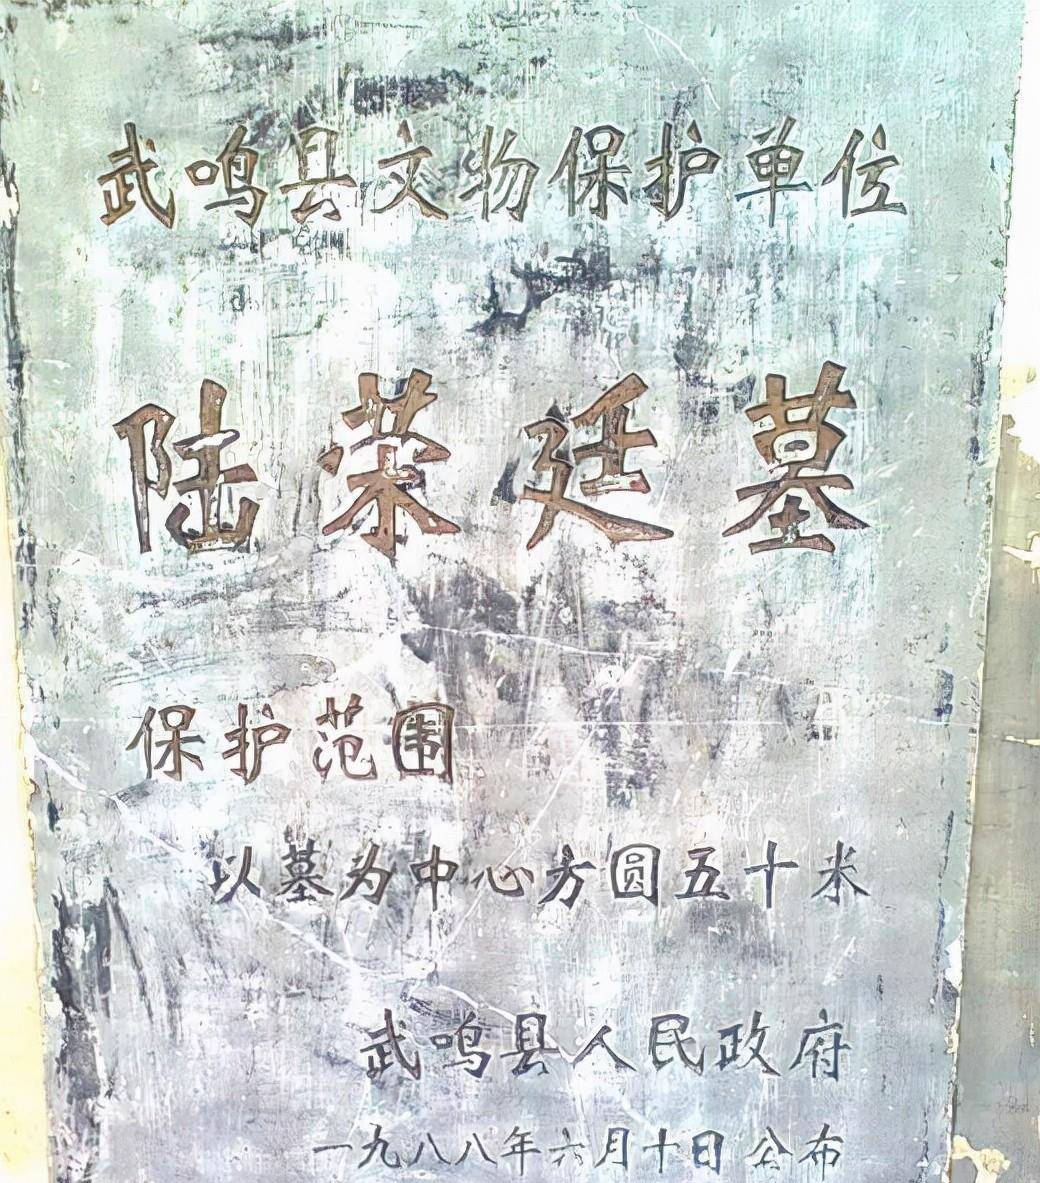 武鸣县文物保护单位
陆荣廷墓
保护范围
以墓为中心方圆五十米
武鸣县人民政府
一九八八年六月十日公布